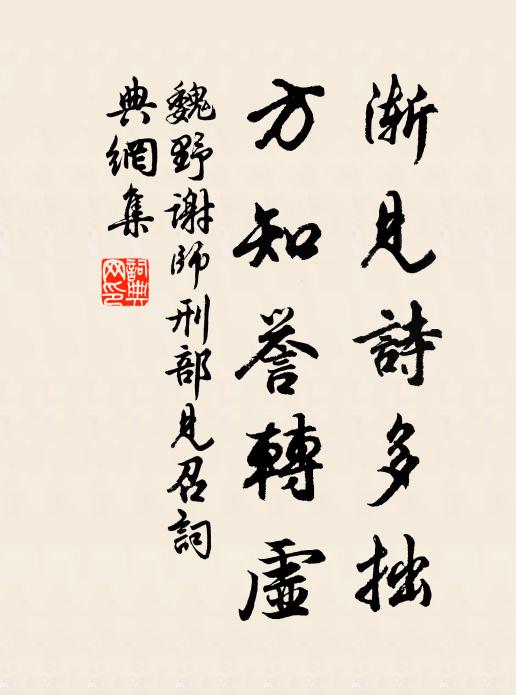 漸見詩多拙
方知譽轉虛
魏野謝師刑部見召詞
典網集
詞典
网印